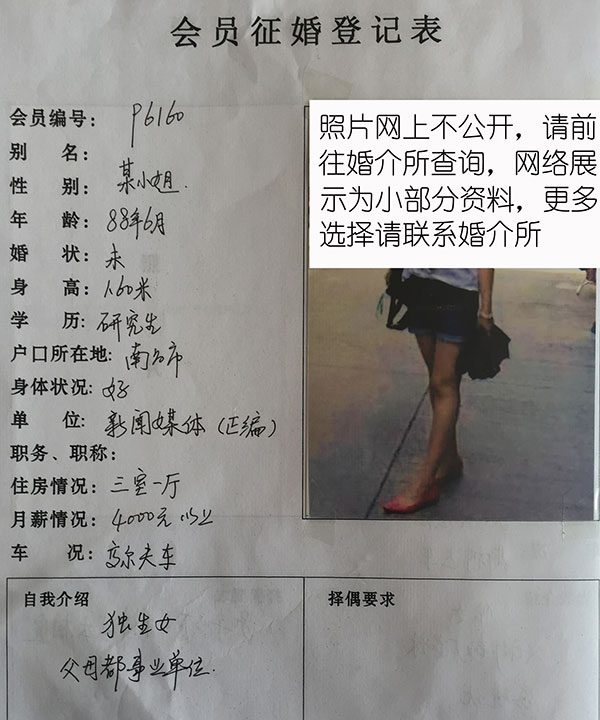 会员征婚登记表
会员编号: P6160
别 名:
性 别: 某小姐.
年 龄: 88年6月
婚 状: 未
身 高: 1.60米
学 历: 研究生
户口所在地: 南昌市
身体状况: 好
单 位: 新闻媒体(正编)
职务、职称:
住房情况: 三室一厅
月薪情况: 4000元以上
车 况: 高尔夫车
照片网上不公开,请前
往婚介所查询,网络展
示为小部分资料,更多
选择请联系婚介所
自我介绍
独生女
父母都事业单位.
择偶要求